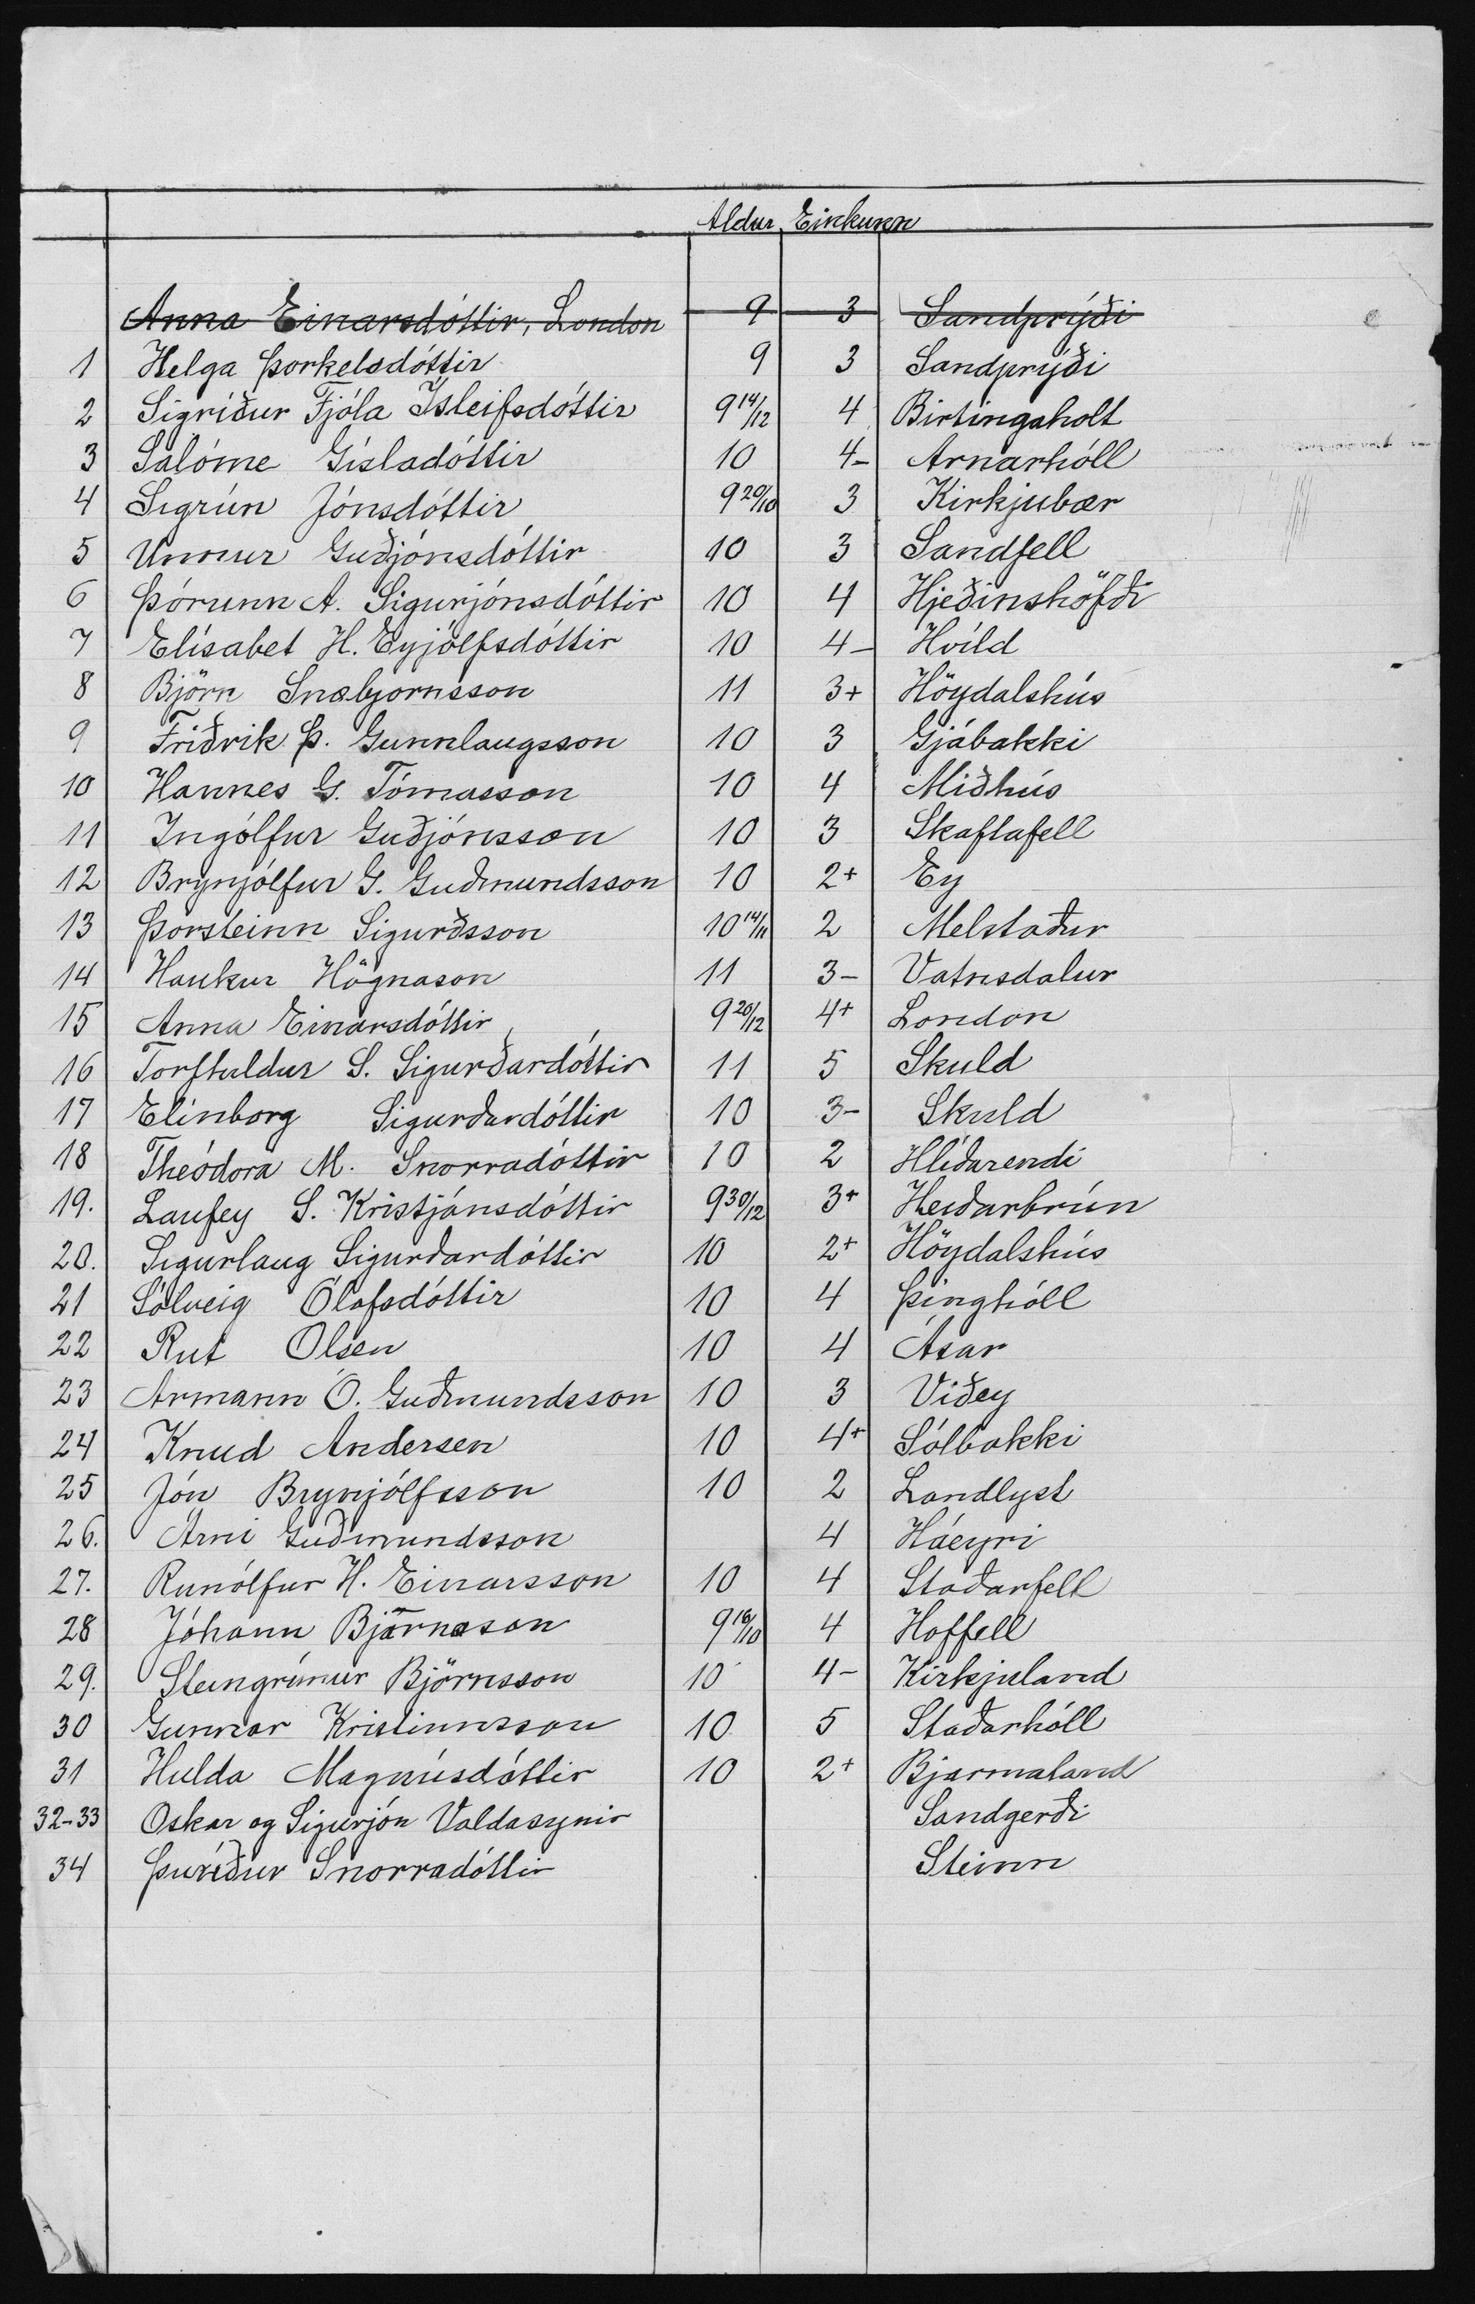 Aldur Einkunn
Anna Einarsdóttir, London 9 3 Sandprýði
1 Helga Þorkelsdóttir 9 3 Sandprýði
2 Sigríður Fjóla Ísleifsdóttir 9 14/12 4 Birtingaholt
3 Salóme Gísladóttir 10 4- Arnarhóll
4 Sigrún Jónsdóttir 9 20/10 3 Kirkjubær
5 Unnur Guðjónsdóttir 10 3 Sandfell
6 Þórunn A. Sigurjónsdóttir 10 4 Hjeðinshöfði
7 Elísabet H. Eyjólfsdóttir 10 4- Hvíld
8 Björn Snæbjornsson 11 3+ Höydalshús
9 Friðrik Þ. Gunnlaugsson 10 3 Gjábakki
10 Hannes G. Tómasson 10 4 Miðhús
11 Ingólfur Guðjónsson 10 3 Skaftafell
12 Brynjólfur G. Guðmundsson 10 2+ Ey
13 Þorsteinn Sigurðsson 10 14/11 2 Melstaður
14 Haukur Högnason 11 3- Vatnsdalur
15 Anna Einarsdóttir 9 20/12 4+ London
16 Torfhildur S. Sigurðardóttir 11 5 Skuld
17 Elínborg Sigurðardóttir 10 3- Skuld
18 Theódora M. Snorradóttir 10 2 Hlíðarendi
19. Laufey S. Kristjánsdóttir 9 30/12 3+ Heiðarbrún
20. Sigurlaug Sigurðardóttir 10 2+ Höydalshús
21 Sólveig Ólafsdóttir 10 4 Þinghóll
22 Rut Olsen 10 4 Ásar
23 Armann Ó. Guðmundsson 10 3 Viðey
24 Knud Andersen 10 4+ Sólbakki
25 Jón Brynjólfsson 10 2 Landlyst
26. Árni Guðmundsson 4 Háeyri
27. Runólfur H. Einarsson 10 4 Staðarfell
28 Jóhann Bjarnason 9 16/10 4 Hoffell
29. Steingrímur Björnsson 10 4- Kirkjuland
30 Gunnar Kristinnsson 10 5 Staðarhóll
31 Hulda Magnúsdóttir 10 2+ Bjarmaland
32-33 Oskar og Sigurjón Valdasynir Sandgerði
34 Þuríður Snorradóttir Steinn